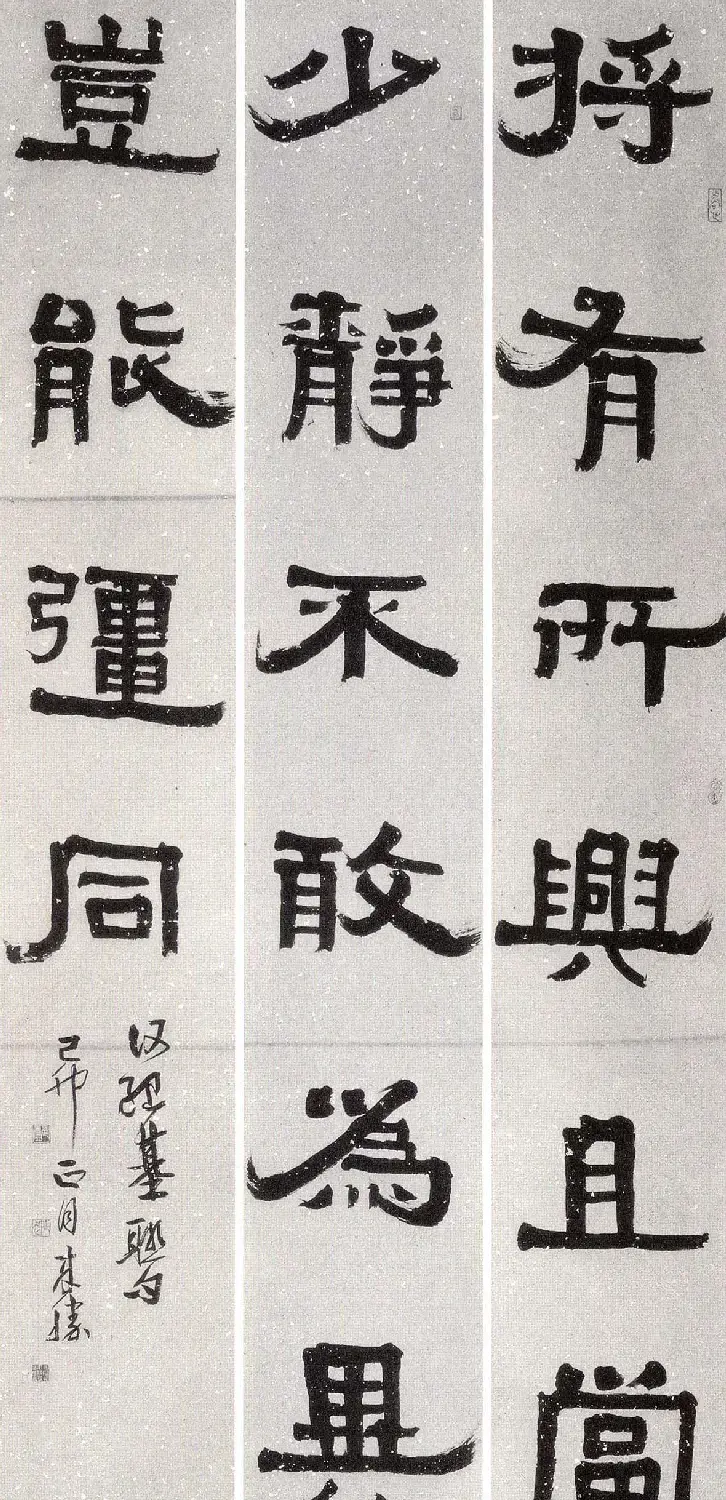 將有所興且當
少靜不敢為異
豈能彊同
何紹基聯句
己卯正月